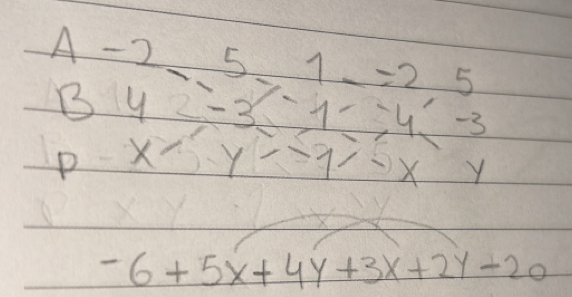 A -2 5 1 -2 5
B 4 -3 1 4 -3
P X Y 1 X Y
-6+5x+4y+3x+2y-20